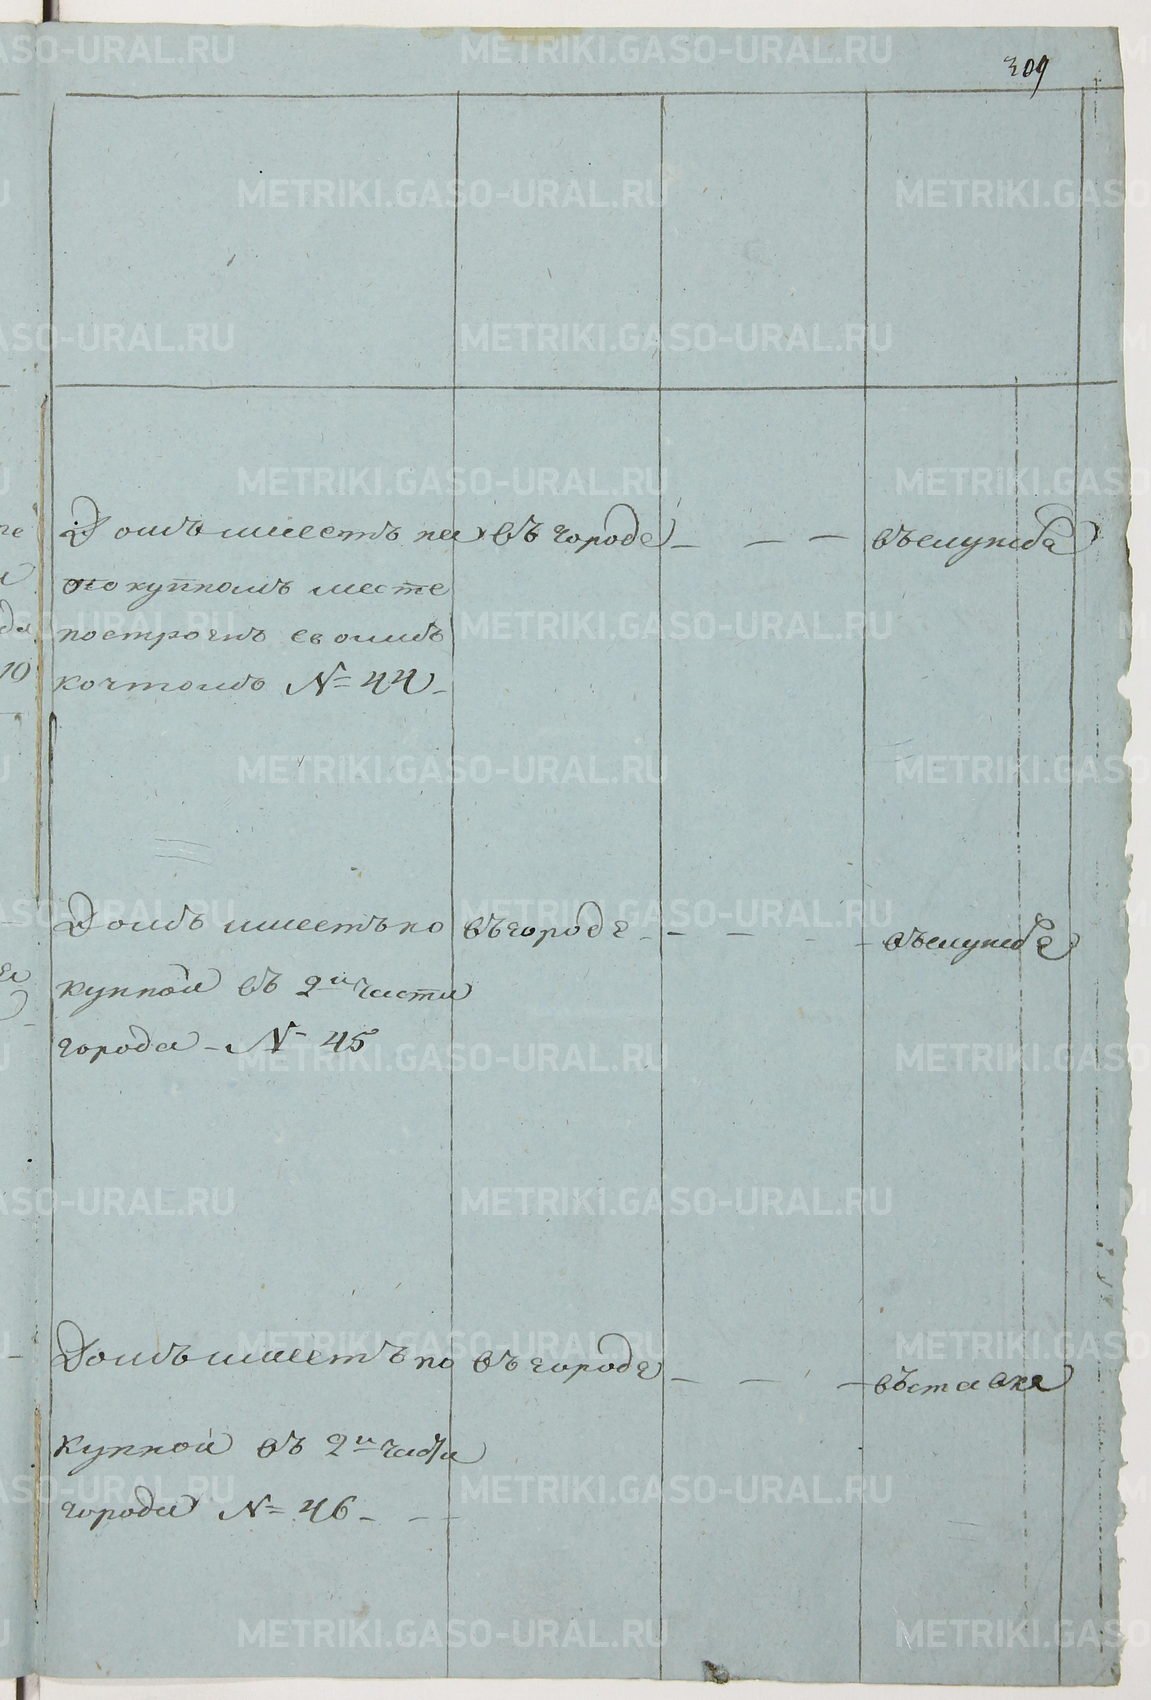 309
Домъ имеетъ на въ городе — — — въ службе
покупномъ месте
построенъ своимъ
коштомъ № 44
Домъ имеетъ по въ городе — — — въ службе
купной въ 2й части
города № 45
Домъ имеетъ по въ городе — — — въ ставке
купной въ 2й части
города № 46
10
METRIKI.GASO-URAL.RU